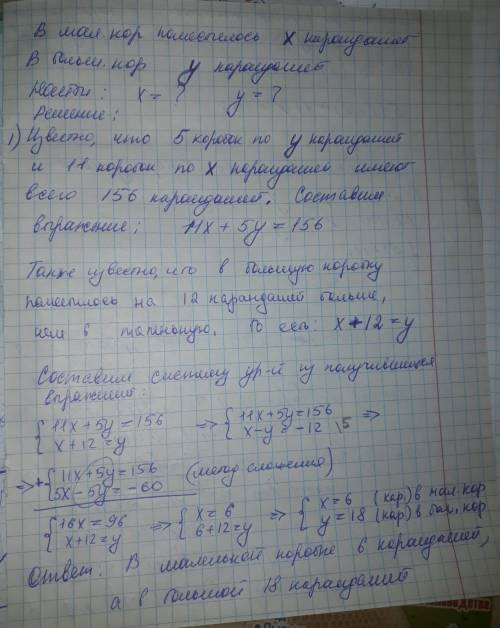 В мал. кор поместилось x карандашей
В больш. кор y карандашей
Найти: x = ? y = ?
Решение:
1) Известно, что 5 коробок по y карандашей
и 11 коробок по x карандашей имеют
всего 156 карандашей. Составим
выражение: 11x + 5y = 156
Также известно, что в большую коробку
поместилось на 12 карандашей больше,
чем в маленькую. То есть: x + 12 = y
Составим систему ур-й из получившихся
выражений:
{ 11x + 5y = 156 => { 11x + 5y = 156 =>
{ x + 12 = y { x - y = -12 \5
=> + { 11x + 5y = 156 (метод сложения)
{ 5x - 5y = -60
{ 16x = 96 => { x = 6 => { x = 6 (кар.) в мал. кор
{ x + 12 = y { 6 + 12 = y { y = 18 (кар.) в бол. кор.
Ответ: В маленькой коробке 6 карандашей,
а в большой 18 карандашей